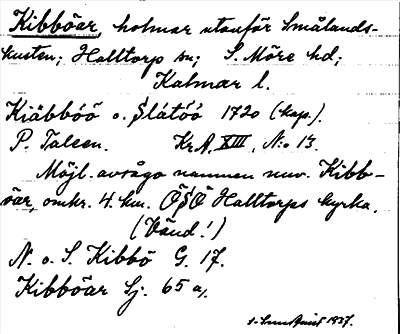 Kibböar, holmar utanför Smålands-
kusten; Halltorp sn; S. Möre hd;
Kalmar l.
Kiäbböö o. Slätöö 1720 (kap.).
P. Talcen. Kr.A. XIII, N:o 13.
Möjl. avråga namnen nuv. Kibb-
öar, omkr. 4 km. ÖSÖ Halltorps kyrka.
(Vänd!)
N. o. S. Kibbö G. 17.
Kibböar Sj. 65 a,
1937.